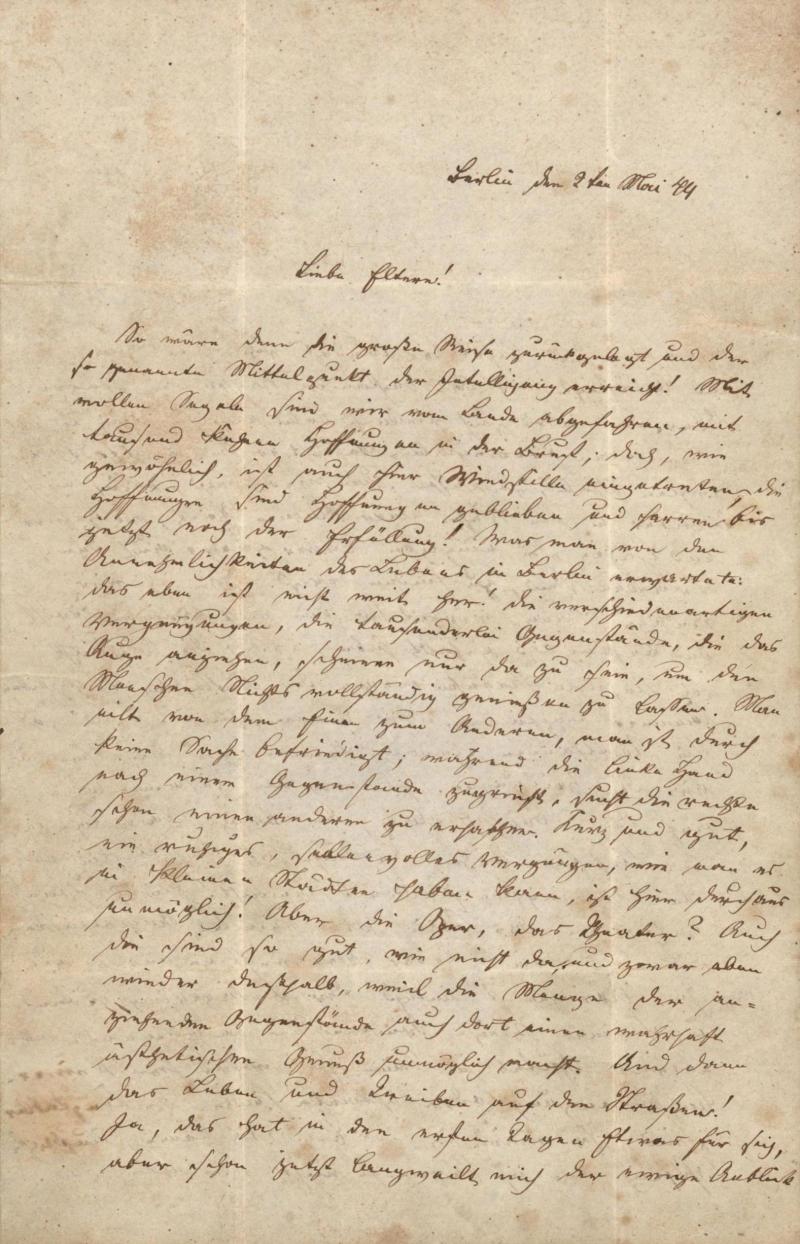 Berlin den 2ten Mai 44
Liebe Eltern!
So wäre denn die große Reise zurückgelegt und der
so genannte Mittelpunkt der Intelligenz erreicht! Mit
vollen Segeln sind wir vom Lande abgefahren, mit
tausend kühnen Hoffnungen in der Brust; doch, wie
gewöhnlich, ist auch hier Windstille eingetreten, die
Hoffnungen sind Hoffnungen geblieben und harren bis
jetzt noch der Erfüllung! Was man von den
Annehmlichkeiten des Lebens in Berlin erwartete:
das eben ist nicht weit her! die verschiedenartigen
Vergnügungen, die tausenderlei Gegenstände, die das
Auge anziehen, scheinen nur da zu sein, um den
Menschen Nichts vollständig genießen zu lassen. Man
eilt von dem Einen zum Anderen, man ist durch
keine Sache befriedigt; während die linke Hand
nach einem Gegenstande zugreift, sucht die rechte
schon einen anderen zu erhaschen. Kurz und gut,
ein ruhiges, seelenvolles Vergnügen, wie man es
in kleinen Städten haben kann, ist hier durchaus
unmöglich! Aber die Oper, das Theater? Auch
die sind so gut, wie nicht da, und zwar eben
wieder deßhalb, weil die Menge der an=
ziehenden Gegenstände auch dort einen wahrhaft
ästhetischen Genuß unmöglich macht. Und dann
das Leben und Treiben auf den Straßen!
Ja, das hat in den ersten Tagen Etwas für sich,
aber schon jetzt langweilt mich der ewige Anblick